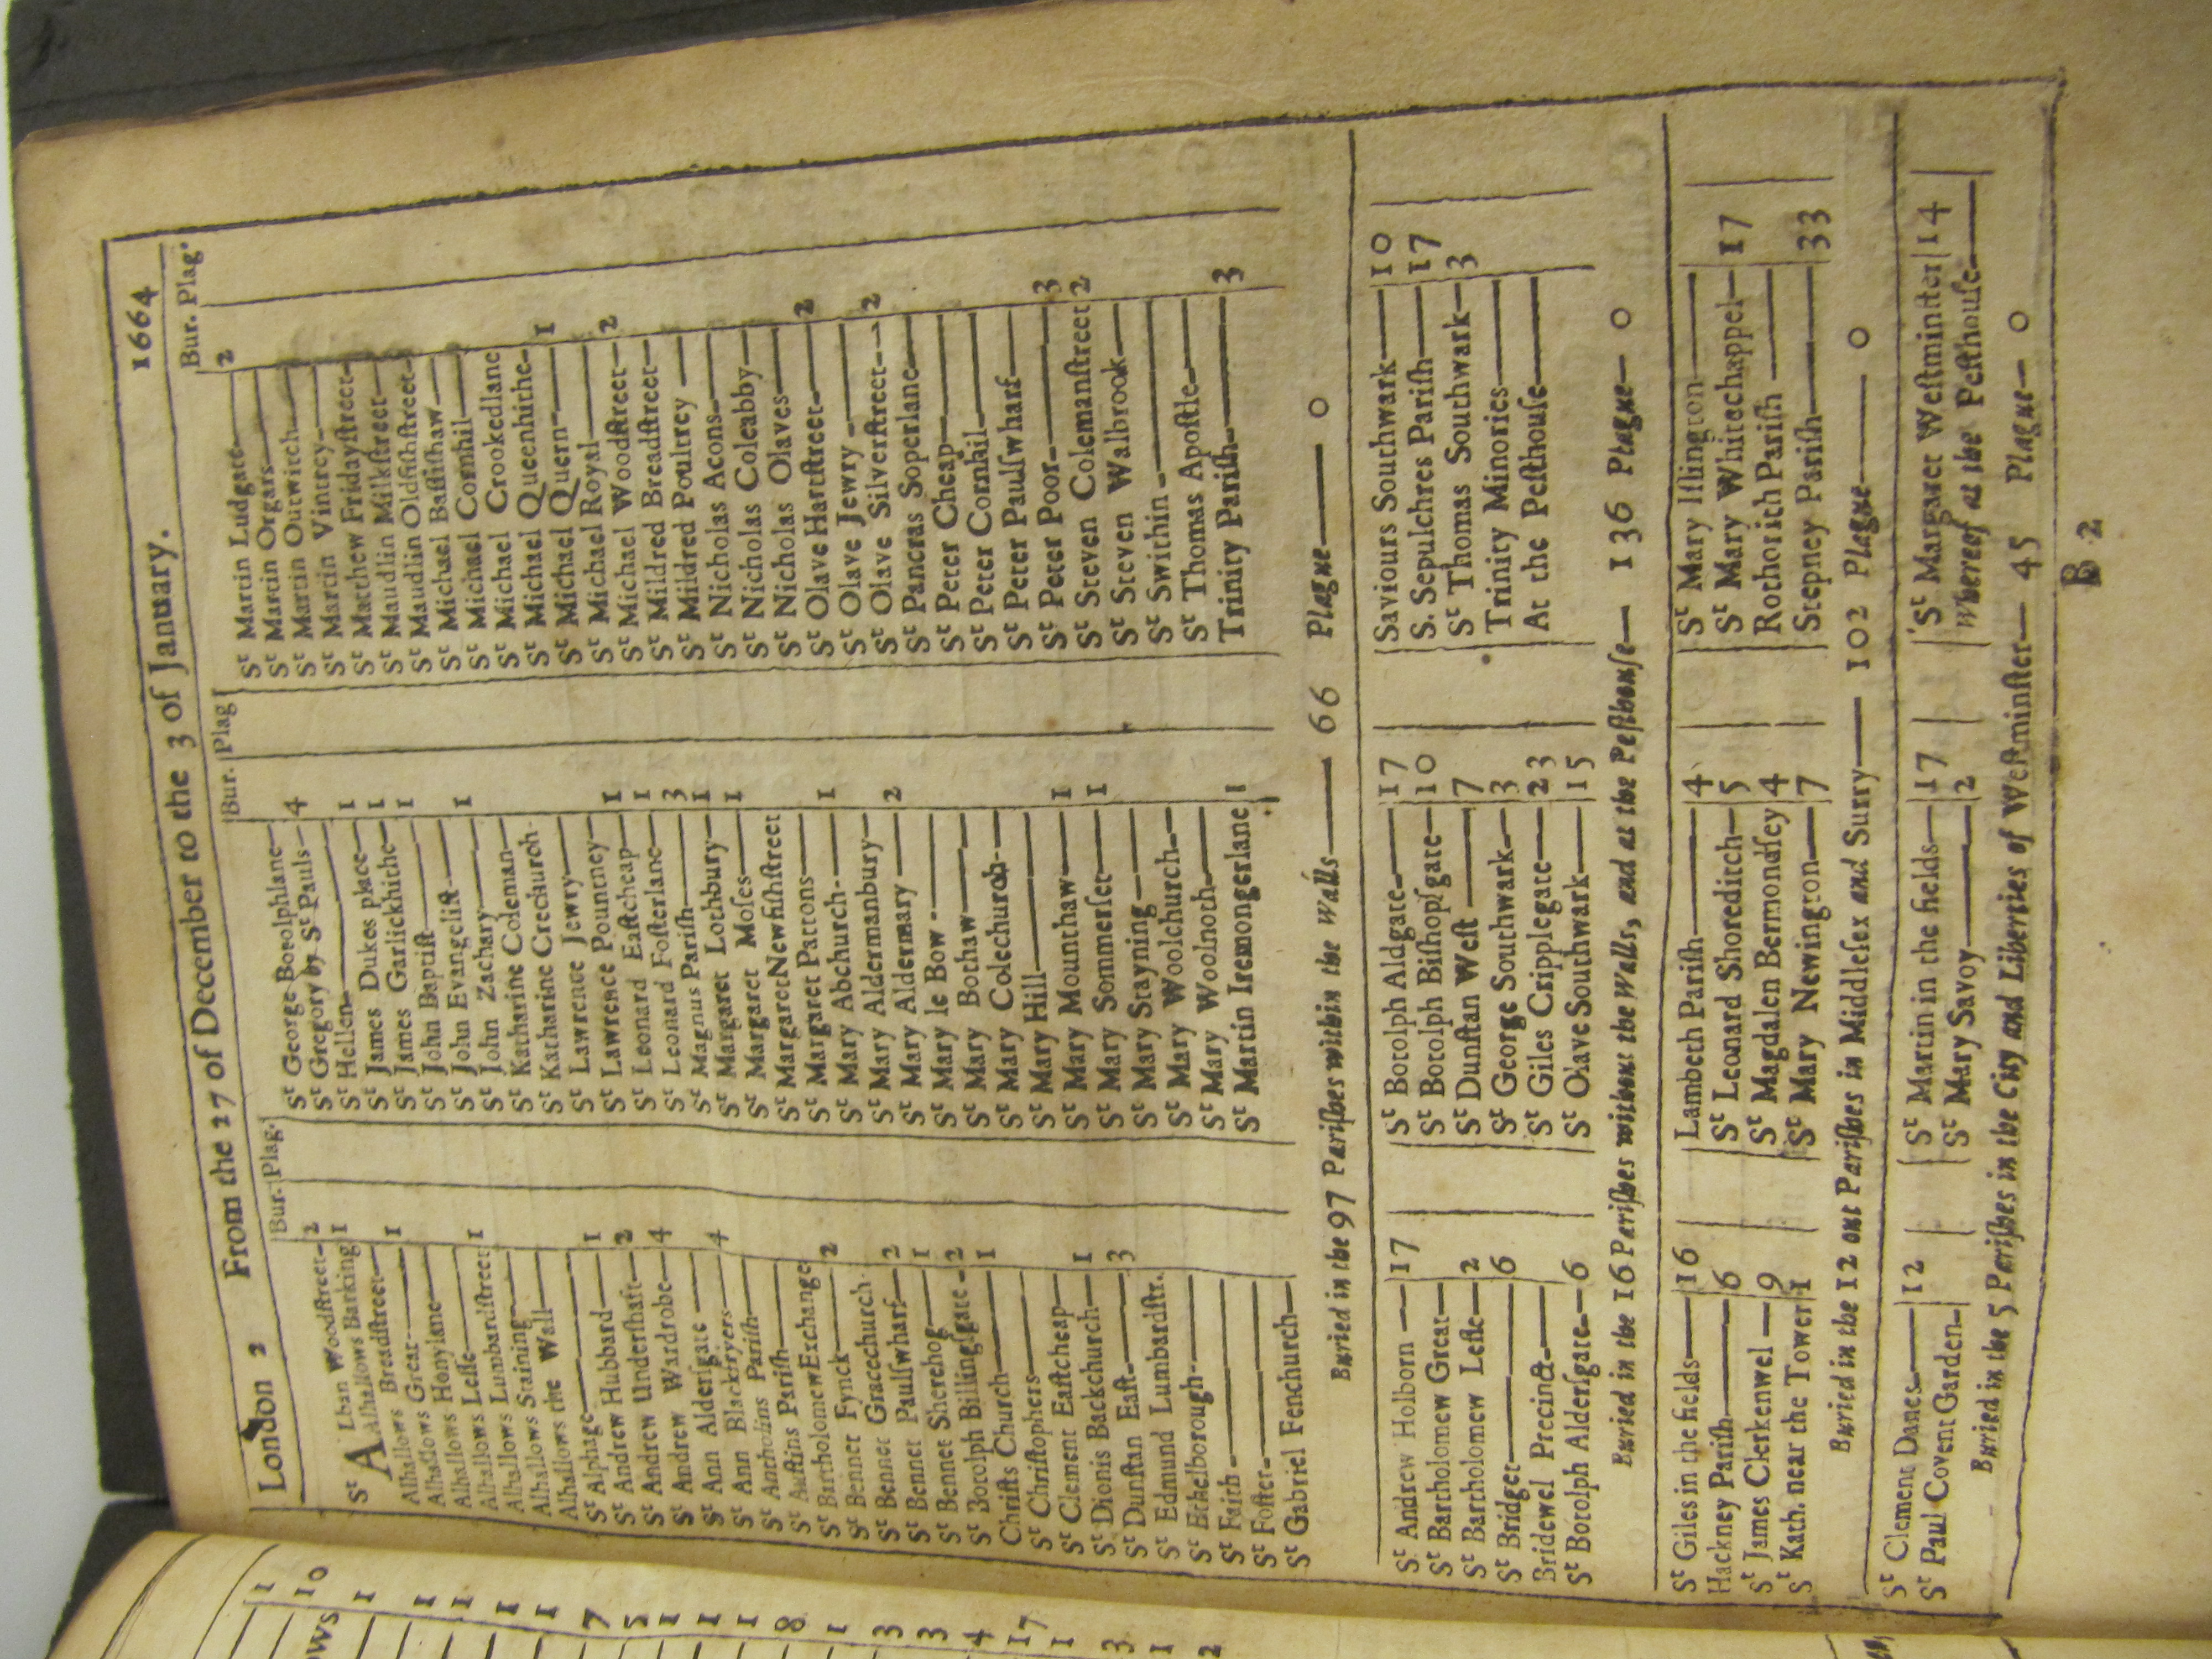 London 2 From the 27 of December to the 3 of January. 1664
Bur. Plag.
St ALban Woodſtreet 2
Alhallows Barking 1
Alhallows Breadſtreet
Alhallows Great 1
Alhallows Honylane
Alhallows Leſſe
Alhallows Lumbardſtreet 1
Alhallows Staining
Alhallows the Wall
St Alphage
St Andrew Hubbard 1
St Andrew Underſhaft 2
St Andrew Wardrobe 4
St Ann Alderſgate
St Ann Blackfryers 4
St Antholins Pariſh
St Auſtins Pariſh
St Bartholomew Exchange
St Bennet Fynck 2
St Bennet Gracechurch
St Bennet Paulſwharf 2
St Bennet Sherehog 1
St Botolph Billingſgate 2
Chriſts Church 1
St Chriſtophers
St Clement Eaſtcheap
St Dionis Backchurch 1
St Dunſtan Eaſt 3
St Edmund Lumbardſtr.
St Ethelborough
St Faith
St Foſter
St Gabriel Fenchurch
Bur. Plag
St George Botolphlane
St Gregory by St Pauls 4
St Hellen
St James Dukes place 1
St James Garlickhithe 1
St John Baptiſt 1
St John Evangeliſt
St John Zachary 1
St Katharine Coleman
St Katharine Crechurch
St Lawrence Jewry
St Lawrence Pountney 1
St Leonard Eaſtcheap 1
St Leonard Foſterlane 3
St Magnus Pariſh 1
St Margaret Lothbury 1
St Margaret Moſes
St Margaret Newfiſhſtreet
St Margaret Pattons
St Mary Abchurch 1
St Mary Aldermanbury
St Mary Aldermary 2
St Mary le Bow
St Mary Bothaw
St Mary Colechurch
St Mary Hill
St Mary Mounthaw 1
St Mary Sommerſet 1
St Mary Stayning
St Mary Woolchurch
St Mary Woolnoth
St Martin Iremongerlane 1
Bur. Plag.
St Martin Ludgate 2
St Martin Orgars
St Martin Outwitch
St Martin Vintrey
St Matthew Fridayſtreet
St Maudlin Milkſtreet
St Maudlin Oldfiſhſtreet
St Michael Baſſiſhaw
St Michael Cornhil
St Michael Crookedlane
St Michael Queenhithe 1
St Michael Quern
St Michael Royal
St Michael Woodſtreet 2
St Mildred Breadſtreet
St Mildred Poultrey
St Nicholas Acons
St Nicholas Coleabby
St Nicholas Olaves
St Olave Hartſtreet 2
St Olave Jewry
St Olave Silverſtreet 2
St Pancras Soperlane
St Peter Cheap
St Peter Cornhil
St Peter Paulſwharf
St Peter Poor 3
St Steven Colemanſtreet 2
St Steven Walbrook
St Swithin
St Thomas Apoſtle
Trinity Pariſh 3
Buried in the 97 Pariſhes within the Walls— 66 Plague— 0
St Andrew Holborn 17
St Bartholomew Great
St Bartholomew Leſſe 2
St Bridget 6
Bridewel Precinct
St Botolph Alderſgate 6
St Botolph Aldgate 17
St Botolph Biſhopſgate 10
St Dunſtan Weſt 7
St George Southwark 3
St Giles Cripplegate 23
St Olave Southwark 15
Saviours Southwark 10
S. Sepulchres Pariſh 17
St Thomas Southwark 3
Trinity Minories
At the Peſthouſe
Buried in the 16 Pariſhes without the Walls, and at the Peſthouſe— 136 Plague— 0
St Giles in the fields 16
Hackney Pariſh 6
St James Clerkenwel 9
St Kath. near the Tower 1
Lambeth Pariſh 4
St Leonard Shoreditch 5
St Magdalen Bermondſey 4
St Mary Newington 7
St Mary Iſlington
St Mary Whitechappel 17
Rothorith Pariſh
Stepney Pariſh 33
Buried in the 12 out Pariſhes in Middleſex and Surry— 102 Plague— 0
St Clement Danes 12
St Paul Covent Garden
St Martin in the fields 17
St Mary Savoy 2
St Margaret Weſtminſter 14
Whereof at the Peſthouſe
Buried in the 5 Pariſhes in the City and Liberties of Weſtminſter— 45 Plague— 0
B 2